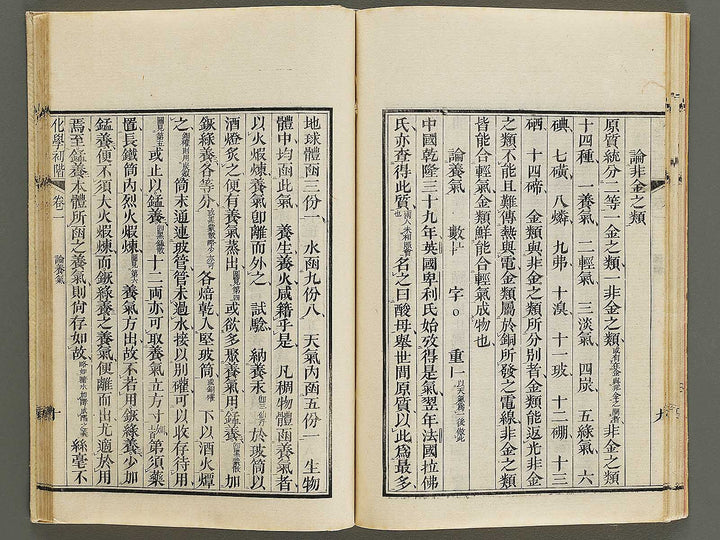 論非金之類
原質統分二等一金之類一非金之類非金之類
十四種 一養氣 二輕氣 三淡氣 四炭 五綠氣 六
碘 七磺 八燐 九弗 十溴 十一玻 十二硼 十三
硒 十四碲 金類與非金之類所分别者金類能返光非金
之類不能且難傳熱與電金類屬於銅所發之電線非金之類
皆能合輕氣金類鮮能合輕氣成物也
論養氣 數 字 重一以天氣爲一後倣此
中國乾隆三十九年英國卑利氏始攷得是氣翌年法國拉佛
氏亦查得此質名之曰酸母舉世間原質以此爲最多
地球體函三份一 水函九份八 天氣内函五份一 生物
體中均函此氣 養生養火咸籍乎是 凡稠物體函養氣者
以火煆煉養氣卽離而外之 試驗 納養汞於玻筒以
酒燈炙之便有養氣蒸出 或欲多聚養氣用錳養加
鉀綠養各等分 各焙乾入堅玻筒 下以酒火燂
之 筒末通連玻管管末過水接以别罐可以收存待用
或止以錳養 十二兩亦可取養氣立方寸 第須藥
置長鐵筒内烈火煆煉 養氣方出故不若用鉀綠養少加
錳養便不須大火煆煉而鉀綠養之養氣便離而出尤適於用
焉至錳養本體所函之養氣則尙存如故 絲毫不
化學初階 卷二 論養氣 十